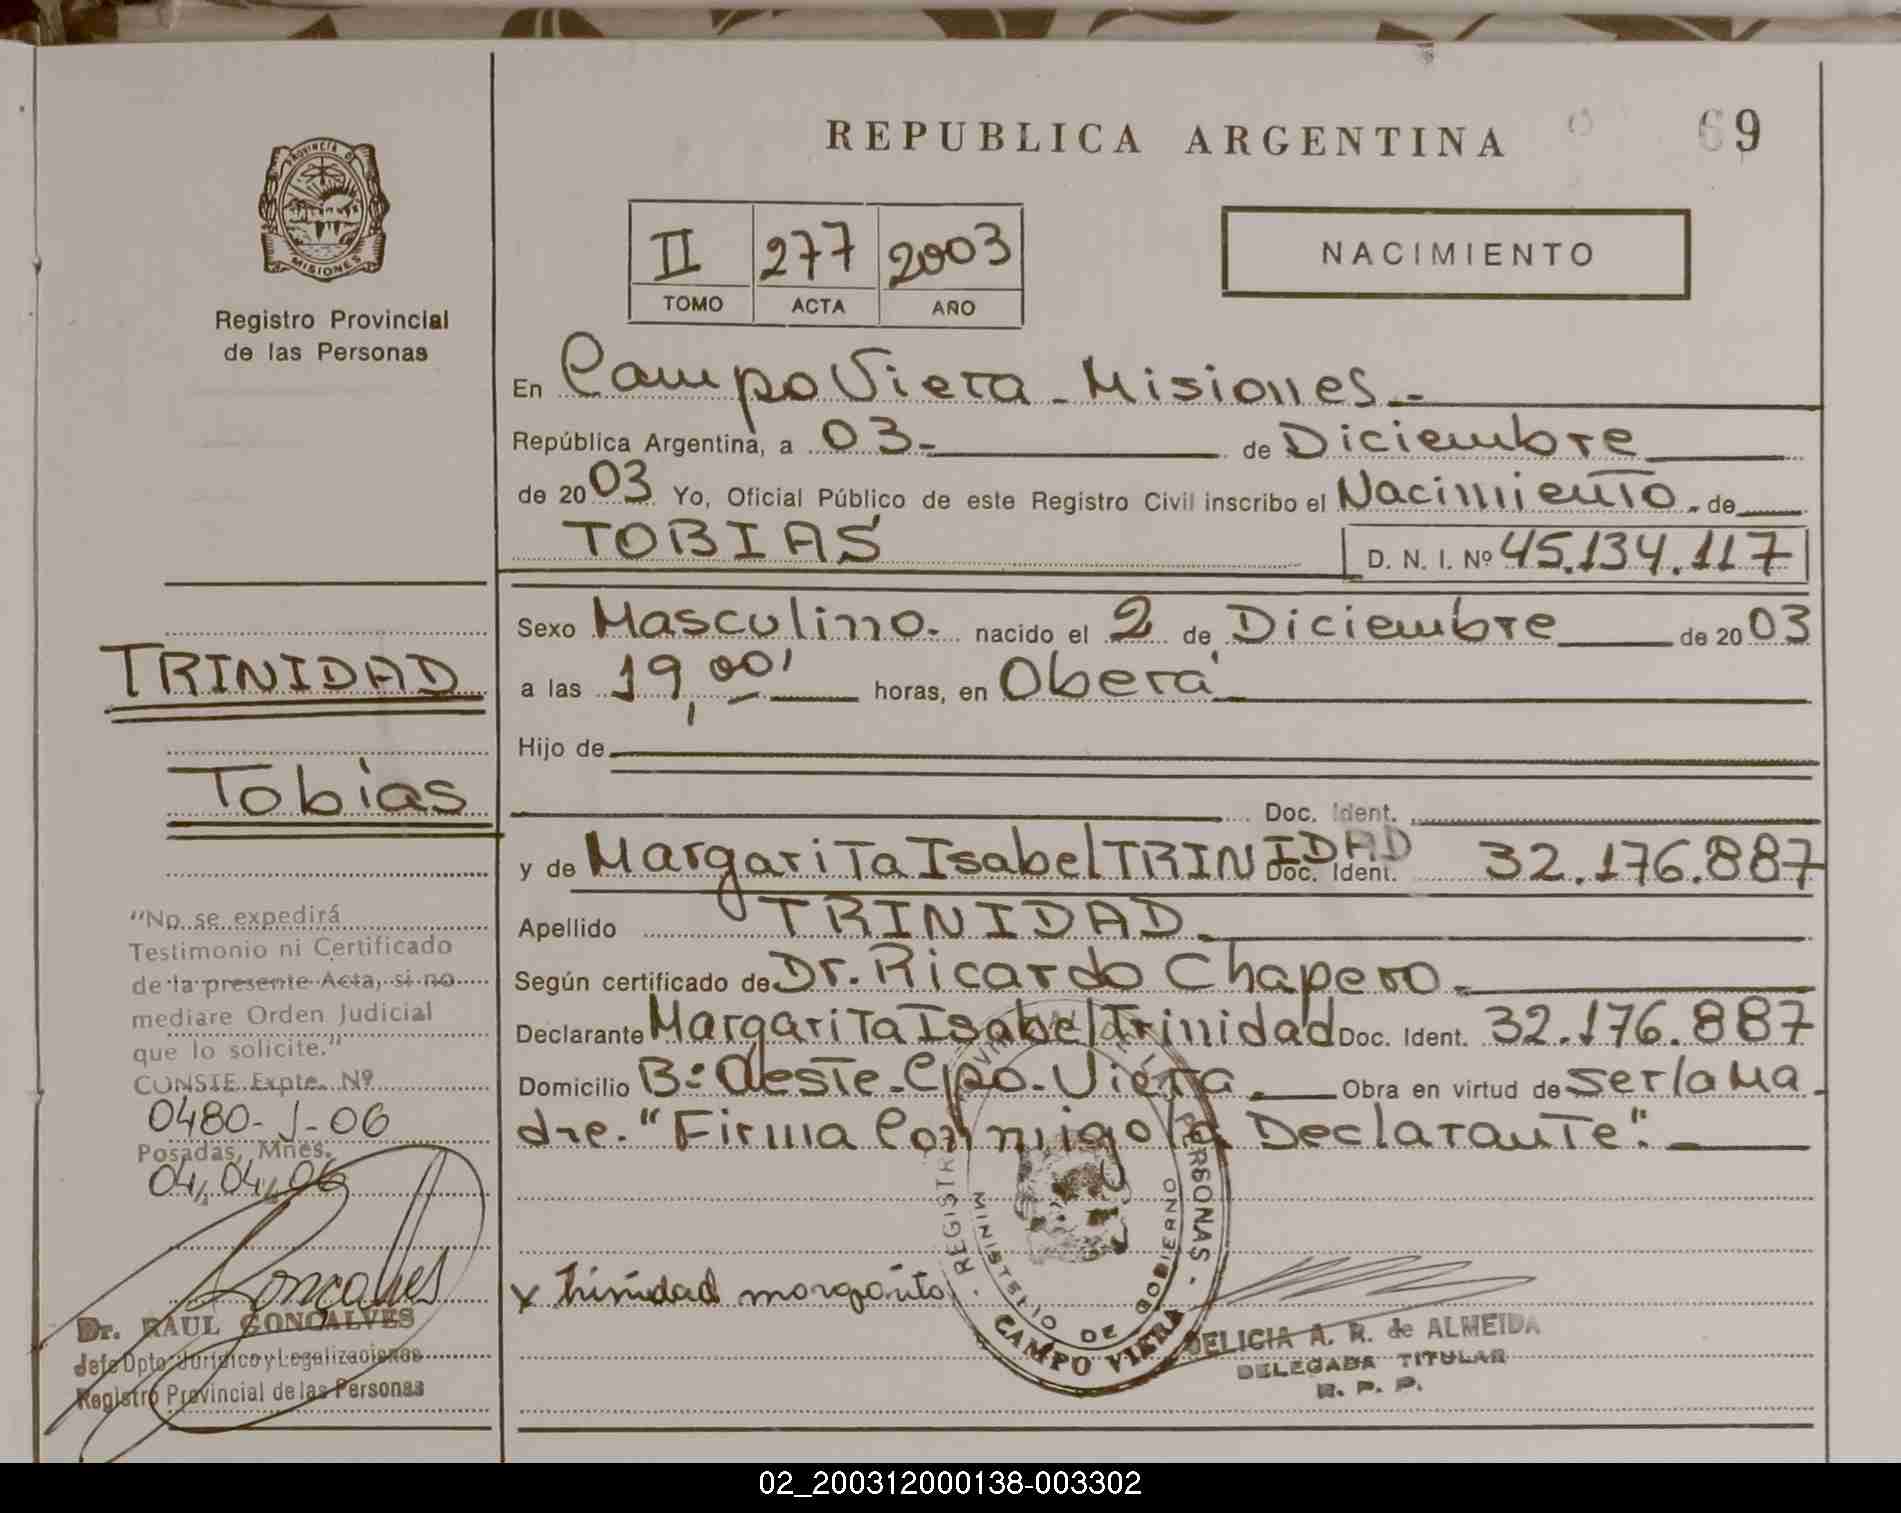 REPUBLICA ARGENTINA
69
PROVINCIA DE
MISIONES
Registro Provincial
de las Personas
II 277 2003
TOMO ACTA AÑO
NACIMIENTO
En Campo Viera - Misiones.-
República Argentina, a 03- de Diciembre
de 2003 Yo, Oficial Público de este Registro Civil inscribo el Nacimiento. de
TOBIAS D. N. I. Nº 45.134.117
Sexo Masculino. nacido el 2 de Diciembre de 2003
a las 19,00' horas, en Oberá
Hijo de
Doc. Ident.
y de Margarita Isabel TRINIDAD Doc. Ident. 32.176.887
Apellido TRINIDAD.
Según certificado de Dr. Ricardo Chapero.
Declarante Margarita Isabel Trinidad Doc. Ident. 32.176.887
Domicilio Bº Oeste - Cpo. Viera. Obra en virtud de ser la Ma
dre. "Firma Conmigo la Declarante".
x trinidad margarita
TRINIDAD
Tobias
"No se expedirá
Testimonio ni Certificado
de la presente Acta, si no
mediare Orden Judicial
que lo solicite."
CONSTE Expte. Nº
0480-J-06
Posadas, Mnes.
04,04,06
Goncalves
Dr. RAUL GONCALVES
Jefe Dpto. Jurídico y Legalizaciones
Registro Provincial de las Personas
PERSONAS
MINISTERIO DE GOBIERNO
CAMPO VIERA
DELICIA A. R. de ALMEIDA
DELEGADA TITULAR
R. P. P.
02_200312000138-003302